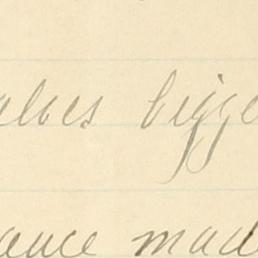 aloes bigge
ance mad